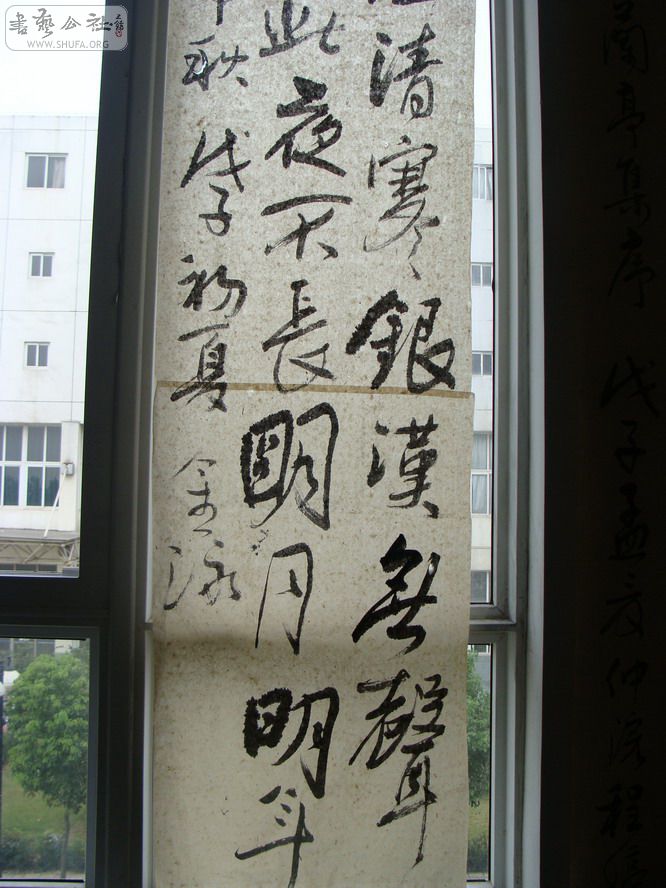 書藝公社
WWW.SHUFA.ORG
清寒銀漢無聲
此夜不長明月明年
秋 戊子初夏 金泳
蘭亭集序 戊子孟夏仲浣程